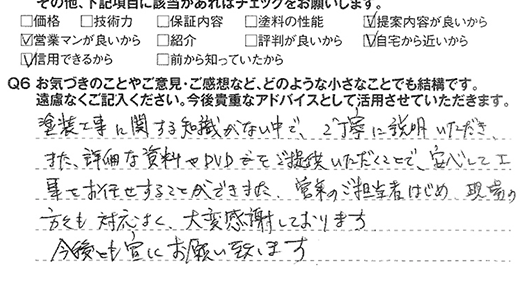 その他、下記項目に該当があればチェックをお願いします。
□価格 □技術力 □保証内容 □塗料の性能 ☑提案内容が良いから
☑営業マンが良いから □紹介 □評判が良いから ☑自宅から近いから
☑信用できるから □前から知っていたから
Q6 お気づきのことやご意見・ご感想など、どのような小さなことでも結構です。
遠慮なくご記入ください。今後貴重なアドバイスとして活用させていただきます。
塗装工事に関する知識がない中で、ご丁寧に説明いただき、
また、詳細な資料やDVDまでご提供いただくことで、安心して工
事をお任せすることができました。営業のご担当者はじめ 現場の
方々も 対応よく、大変感謝しております
今後とも宜しくお願い致します